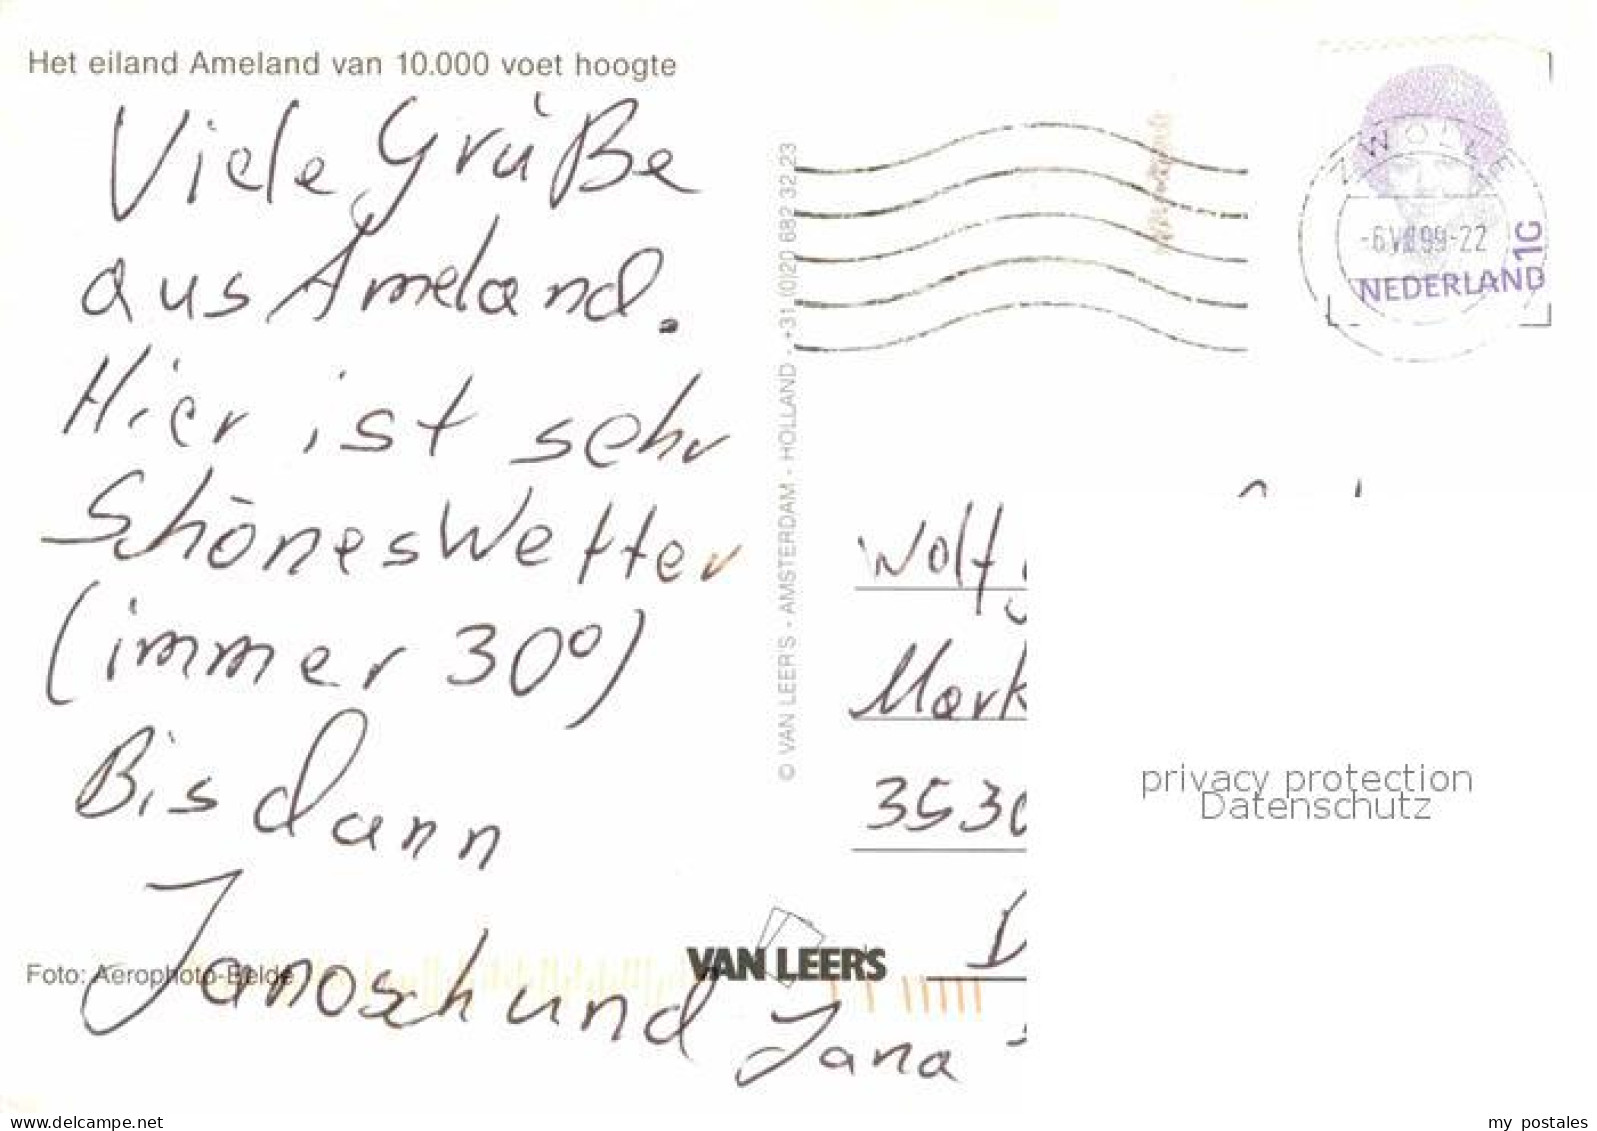 Het eiland Ameland van 10.000 voet hoogte
Viele Grüße
aus Ameland.
Hier ist sehr
Schönes Wetter
(immer 30°)
Bis dann
Janosch und Jana
Foto: Aerophoto-Eelde
© VAN LEER'S - AMSTERDAM - HOLLAND - +31 (0)20 682 32 23
VAN LEER'S
ZWOLLE
99-22
1G
NEDERLAND
Wolf
Mark
353
D
privacy protection
Datenschutz
www.delcampe.net
my_postales